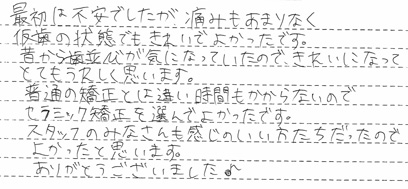 最初は不安でしたが痛みもあまりなく
仮歯の状態でもきれいでよかったです。
昔から歯並びが気になっていたので、きれいになって
とてもうれしく思います。
普通の矯正とは違い時間もかからないので
セラミック矯正を選んでよかったです。
スタッフのみなさんも感じのいい方たちだったので
よかったと思います。
ありがとうございました♪